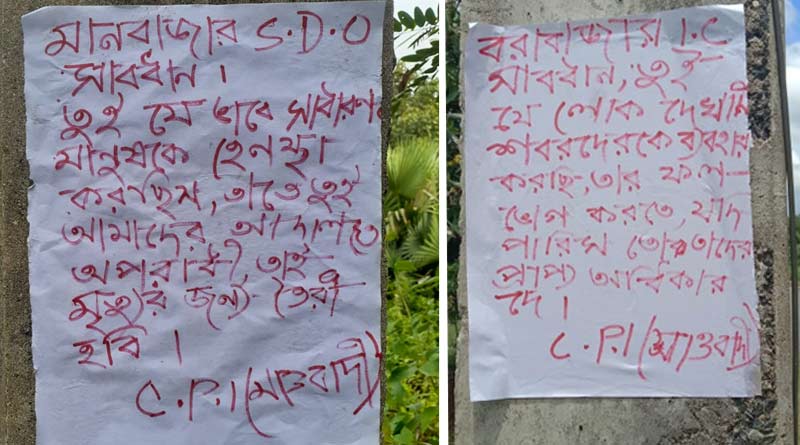 মানবাজার S.D.O
সাবধান ।
তুই যে ভাবে সাধারণ
মানুষকে হেনস্থা
করছিস, তাতে তুই
আমাদের আদালতে
অপরাধী, তাই
মৃত্যুর জন্য তৈরী
হবি ।
C.P.I (মাওবাদী)
বরাবাজার I.C
সাবধান, তুই
যে লোক দেখানি
শবরদেরকে ব্যবহার
করছি, তার ফল
ভোগ করতে, যদি
পারিস তাদের
প্রাপ্য অধিকার
দে ।
C.P.I (মাওবাদী)